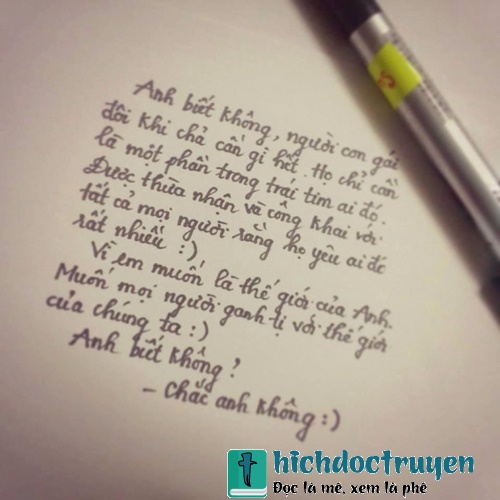 Anh biết không, người con gái
đôi khi chả cần gì hết. Họ chỉ cần
là một phần trong trái tim ai đó.
Được thừa nhận và công khai với
tất cả mọi người rằng họ yêu ai đó
rất nhiều :)
Vì em muốn là thế giới của Anh.
Muốn mọi người ganh tị với thế giới
của chúng ta :)
Anh biết không?
- Chắc anh không :)
thichdoctruyen
Đọc là mê, xem là phê